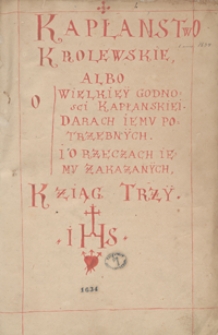 KAPŁANSTWO
KROLEWSKIE,
ALBO
O WIELKIEY GODNO-
SCI KAPŁANSKIEI.
DARACH IEMU PO-
TRZEBNÝCH.
I O RZECZACH IE-
MU ZAKAZANÝCH,
KZIĄG TRZÝ.
IHS.
1634